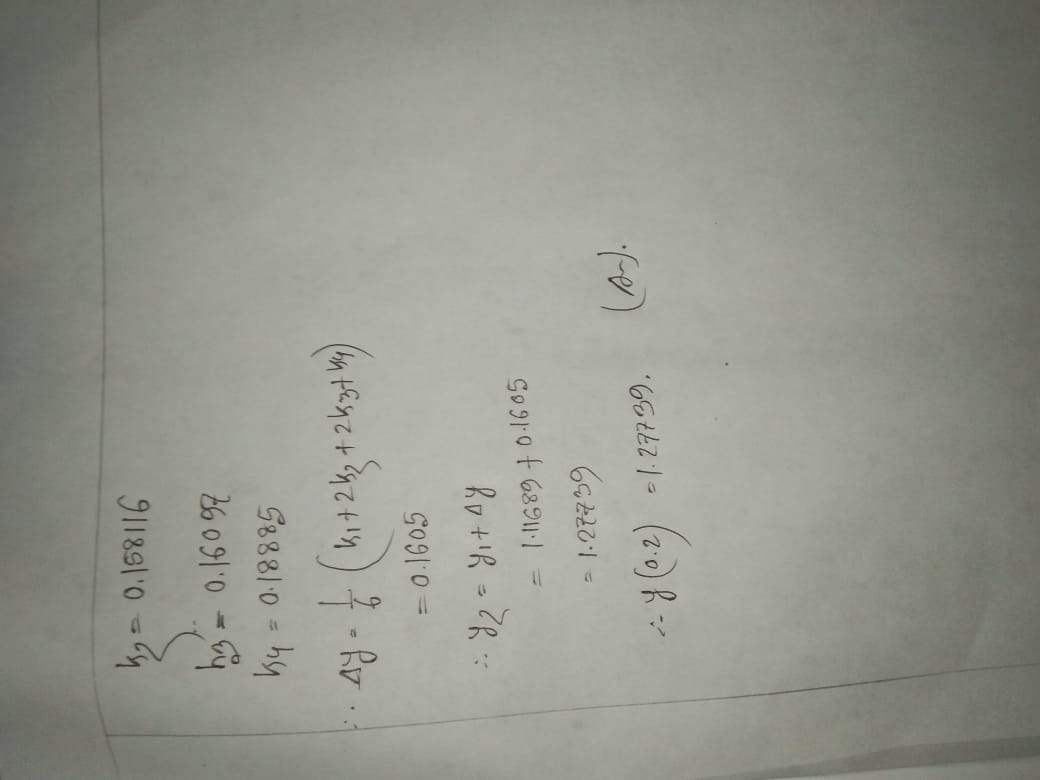 k2 = 0.158116
k3 = 0.16097
k4 = 0.18885
∴ Δy = 1/6 (k1+2k2+2k3+k4)
= 0.1605
∴ y2 = y1 + Δy
= 1.11689 + 0.1605
= 1.27739
∴ y(0.2) = 1.27739. (An).